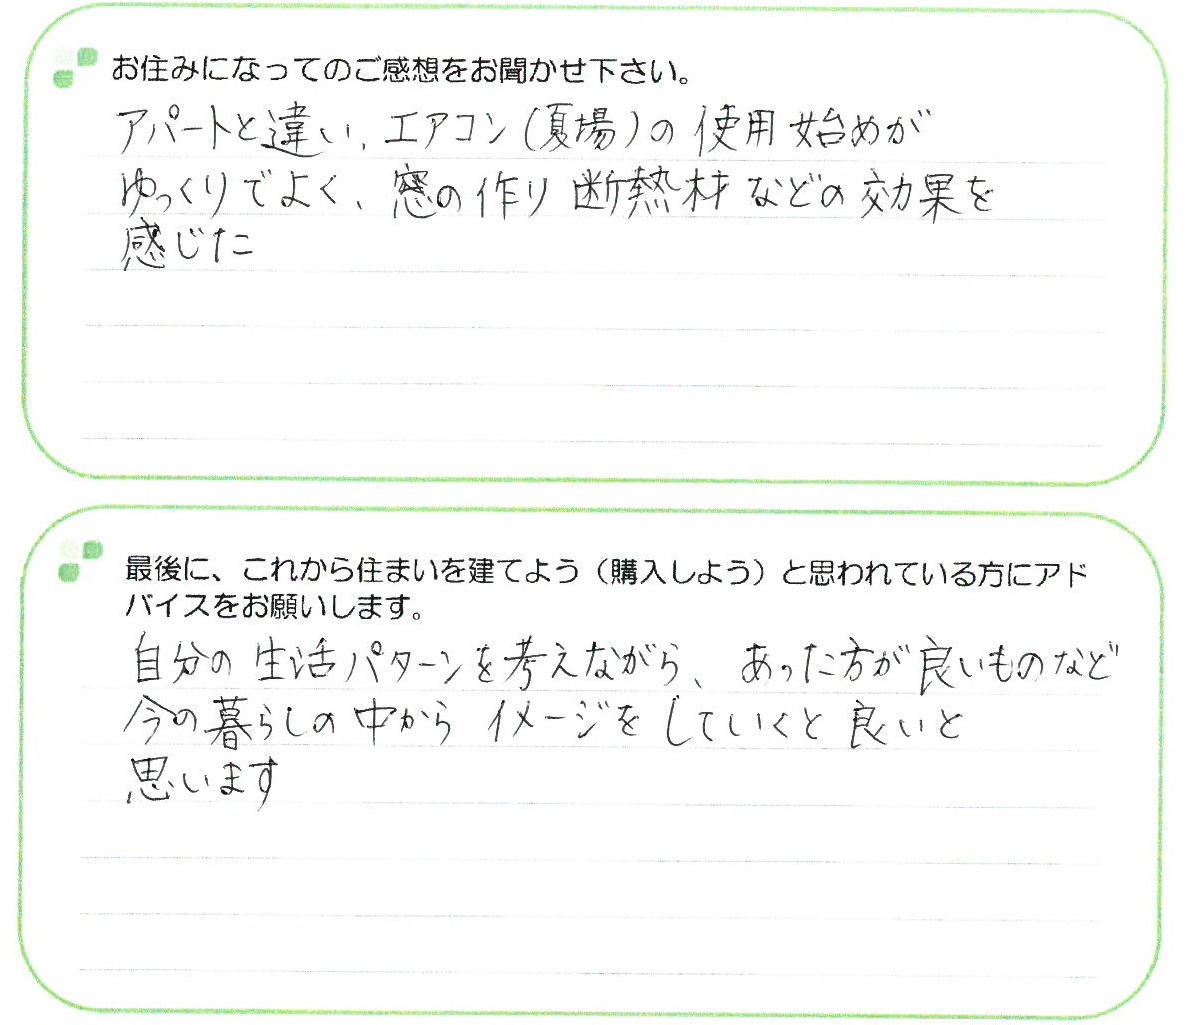 お住みになってのご感想をお聞かせ下さい。
アパートと違い、エアコン(夏場)の使用始めが
ゆっくりでよく、窓の作り 断熱材などの効果を
感じた
最後に、これから住まいを建てよう（購入しよう）と思われている方にアド
バイスをお願いします。
自分の生活パターンを考えながら、あった方が良いものなど
今の暮らしの中から イメージをしていくと良いと
思います